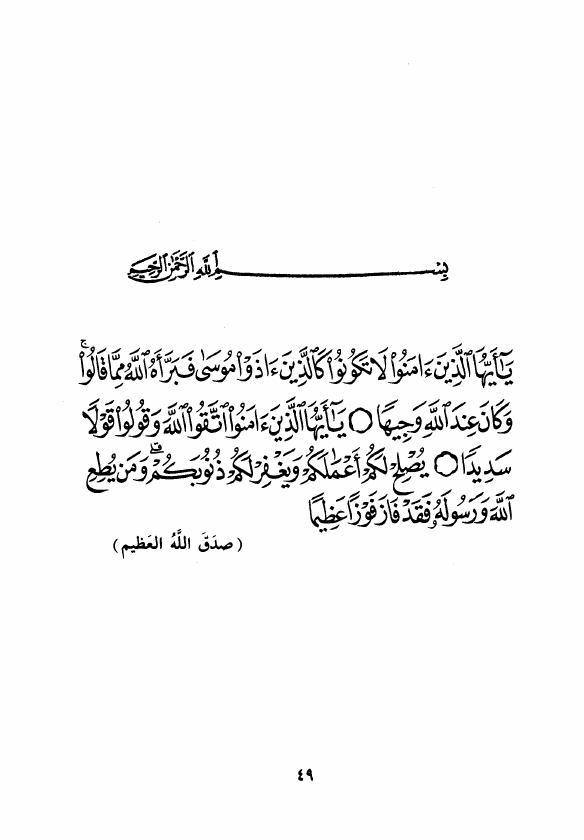 بِسْمِ ٱللَّهِ ٱلرَّحْمَٰنِ ٱلرَّحِيمِ
يَٰٓأَيُّهَا ٱلَّذِينَ ءَامَنُوا۟ لَا تَكُونُوا۟ كَٱلَّذِينَ ءَاذَوْا۟ مُوسَىٰ فَبَرَّأَهُ ٱللَّهُ مِمَّا قَالُوا۟ۚ
وَكَانَ عِندَ ٱللَّهِ وَجِيهًا ۝ يَٰٓأَيُّهَا ٱلَّذِينَ ءَامَنُوا۟ ٱتَّقُوا۟ ٱللَّهَ وَقُولُوا۟ قَوْلًا
سَدِيدًا ۝ يُصْلِحْ لَكُمْ أَعْمَٰلَكُمْ وَيَغْفِرْ لَكُمْ ذُنُوبَكُمْۗ وَمَن يُطِعِ
ٱللَّهَ وَرَسُولَهُۥ فَقَدْ فَازَ فَوْزًا عَظِيمًا
(صدَقَ اللَّهُ العَظيم)
٤٩